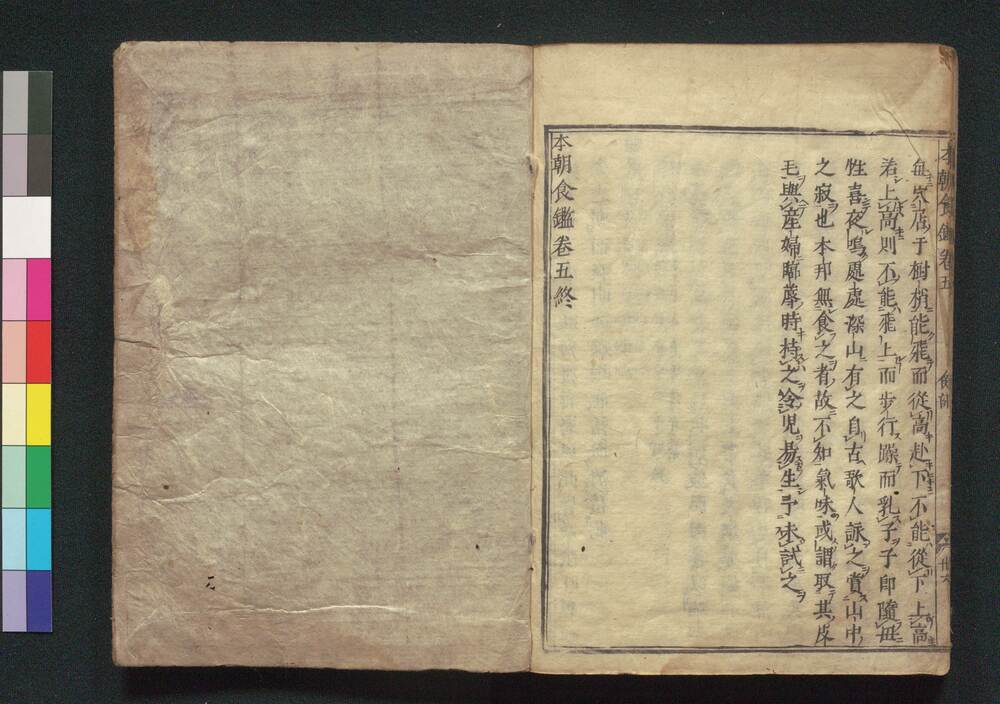 本朝食鑑卷五
毎穴居于樹梢能飛而從高赴下不能從下上高
若上高則不能飛上而歩行躁而乳子子即隨母
性喜夜鳴處處深山有之自古歌人詠之賞山中
之寂也本邦無食之者故不知氣味或謂取其皮
毛與産婦臨蓐時持之令児易生予未試之
本朝食鑑卷五終